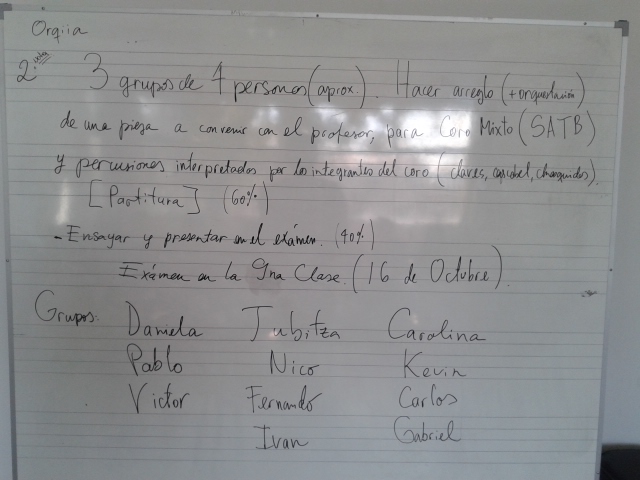 Orqiia
2. 3 grupos de 4 personas (aprox.). Hacer arreglo (+ orquestación)
de una pieza a convenir con el profesor, para Coro Mixto (SATB)
y percusiones interpretados por los integrantes del coro (claves, cascabel, changuidos).
[Partitura] (60%)
- Ensayar y presentar en el exámen. (40%)
Exámen en la 9na Clase. (16 de Octubre).
Grupos: Daniela Jubitza Carolina
Pablo Nico Kevin
Victor Fernando Carlos
Ivan Gabriel